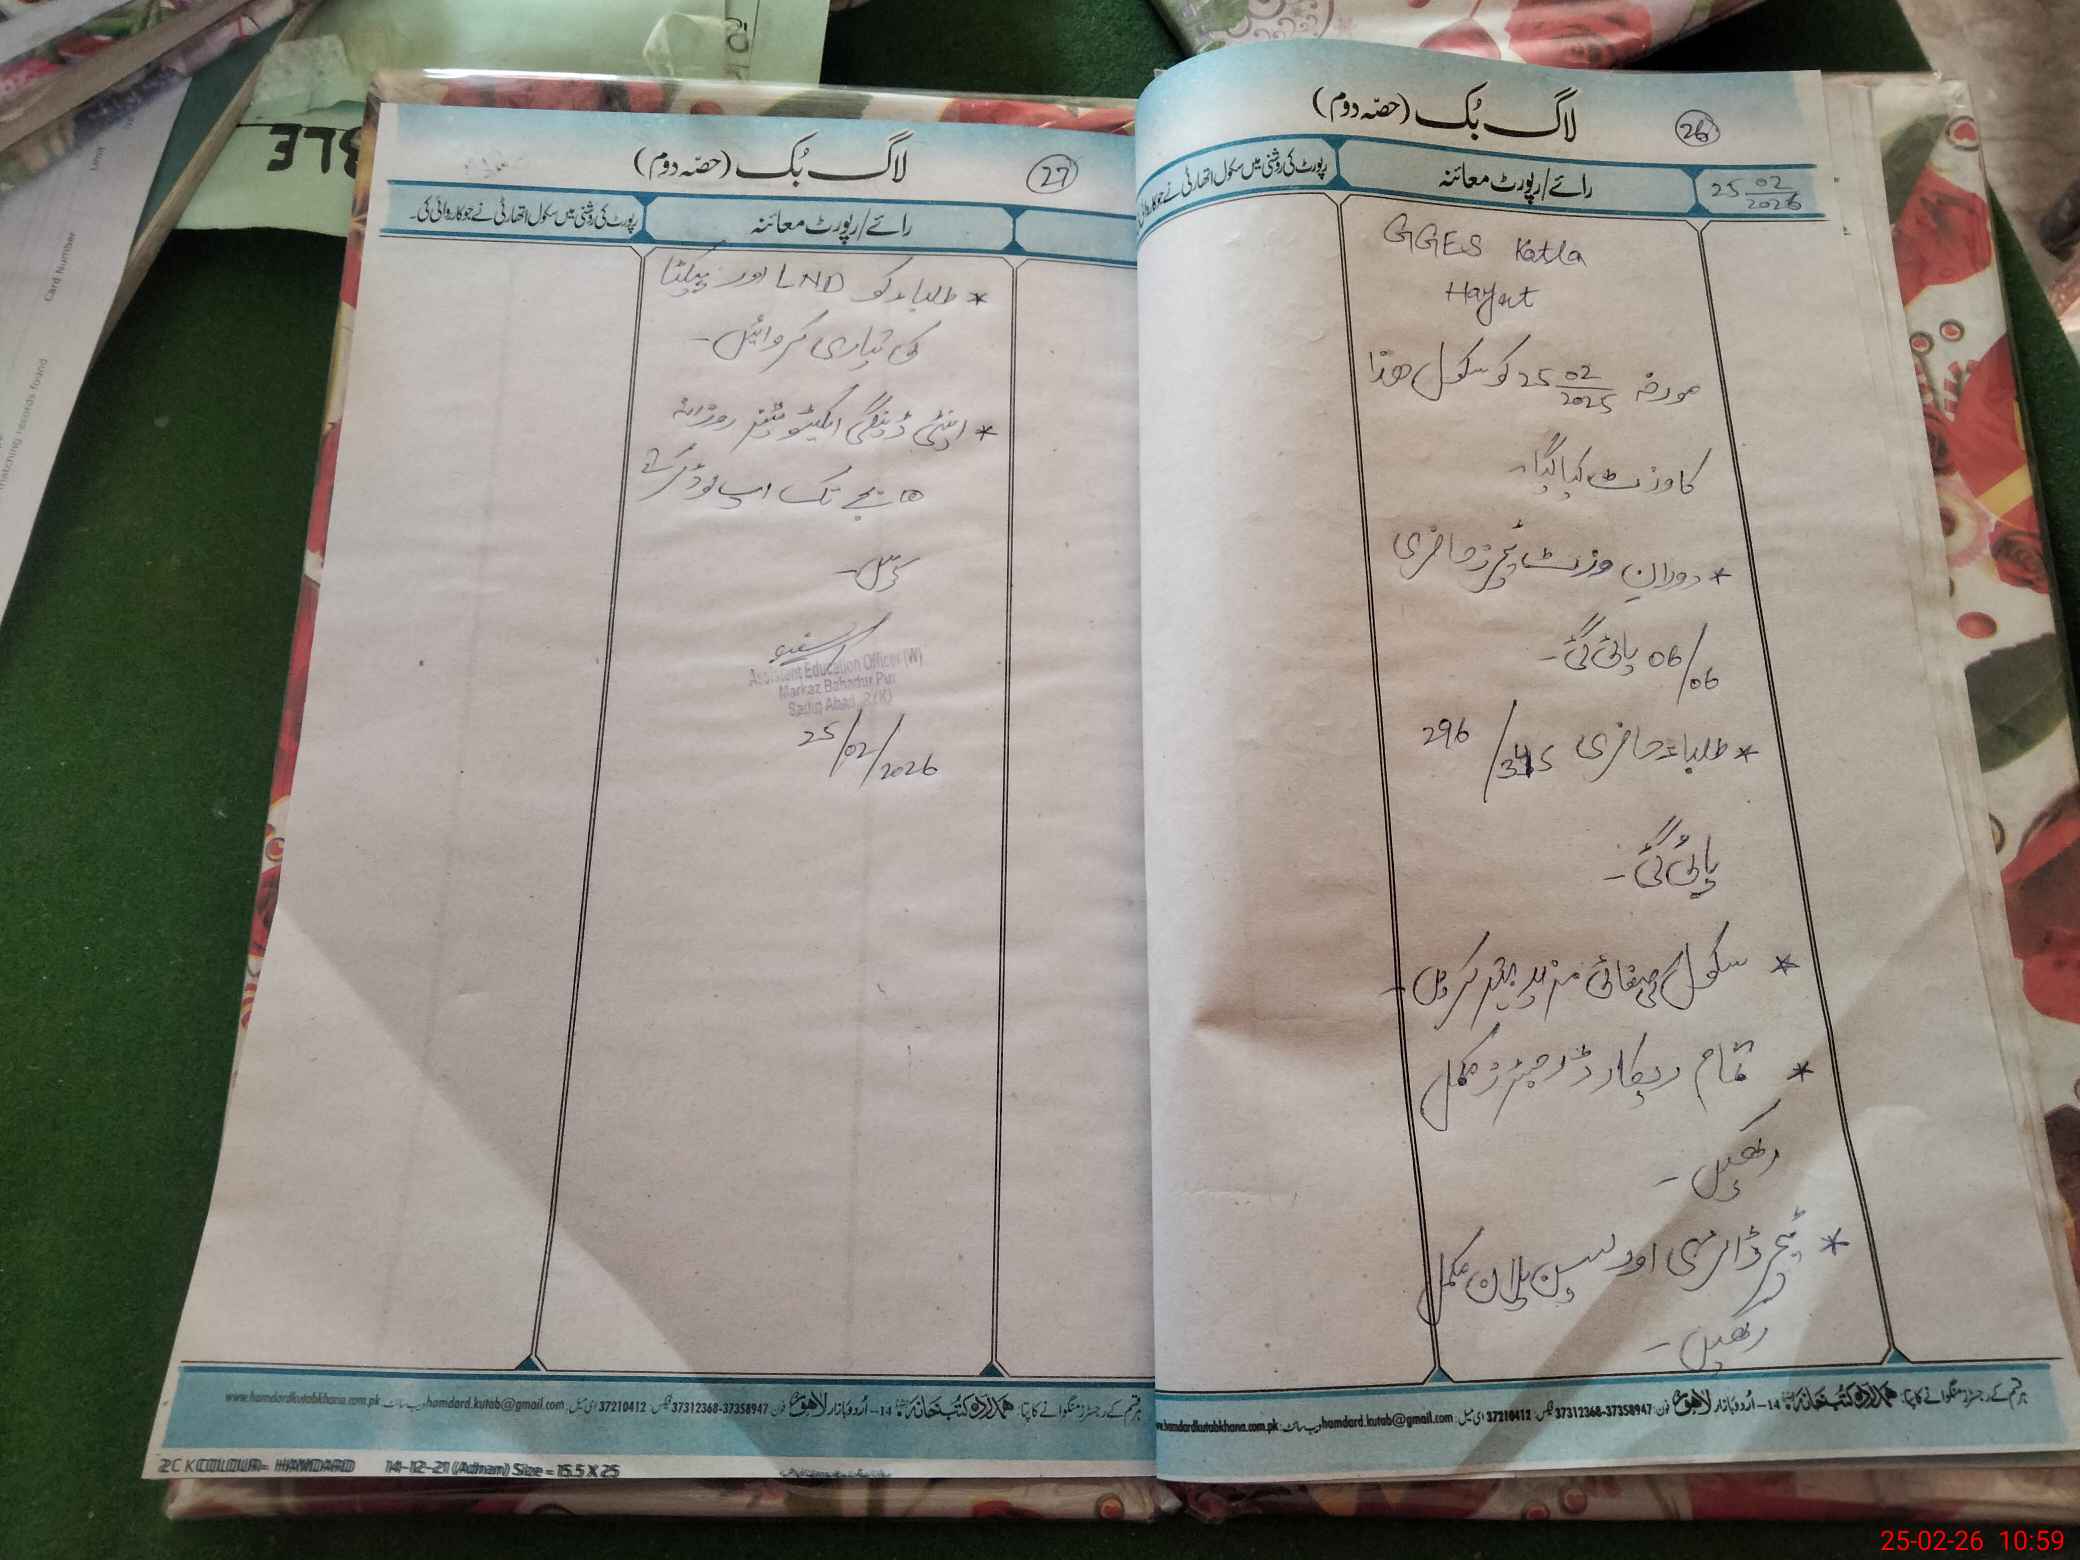 لاگ بُک (حصّہ دوم)
26
25 02/2026
رائے/رپورٹ معائنہ
رپورٹ کی روشنی میں سکول اتھارٹی نے جو کاروائی کی
GGES Katla
Hayat
مورخہ 25 02/2025 کو سکول ھذا
کا وزٹ کیا گیا۔
* دوران وزٹ ٹیچرز حاضری
06/06 پائی گئی۔
* طلباء حاضری 296/345
پائی گئی۔
* سکول کی صفائی مزید بہتر کریں۔
* تمام ریکارڈ رجسٹرز مکمل
رکھیں۔
* ٹیچر ڈائری اور لیسن پلان مکمل
رکھیں۔
ہر قسم کے رجسٹرز منگوانے کا پتا: ہمدرد کتب خانہ 14-اُردو بازار لاہور فون: 37312368-37358947 فیکس: 37210412 ای میل: hamdard.kutab@gmail.com ویب سائٹ: www.hamdardkutabkhana.com.pk
لاگ بُک (حصّہ دوم)
27
رائے/رپورٹ معائنہ
رپورٹ کی روشنی میں سکول اتھارٹی نے جو کاروائی کی۔
* طلباء کو LND اور پیکٹا
کی تیاری کروائیں۔
* اینٹی ڈینگی ایکٹیویٹیز روزانہ
10 بجے تک اپ لوڈ کرکے
کریں۔
Assistant Education Officer (W)
Markaz Bahadur Pur
Sadiq Abad
25/02/2026
ہر قسم کے رجسٹرز منگوانے کا پتا: ہمدرد کتب خانہ 14-اُردو بازار لاہور فون: 37312368-37358947 فیکس: 37210412 ای میل: hamdard.kutab@gmail.com ویب سائٹ: www.hamdardkutabkhana.com.pk
2C K COLOUR= HAMDARD 14-12-21 (Adnam) Size = 15.5 X 25
Card Number
matching records found
25-02-26 10:59